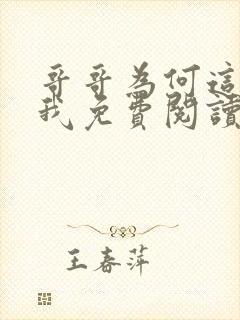 哥哥為何這
我免費閱讀
王春萍